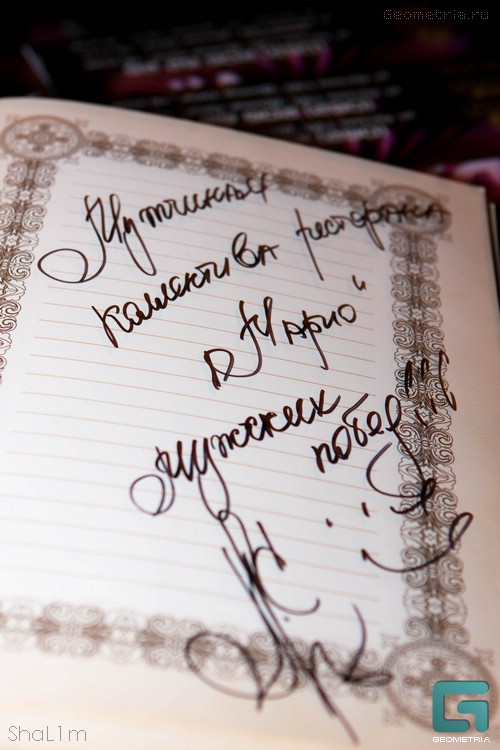 Geometria.ru
Мужчинам
коллектива ресторана
„Марио"
мужских
побед!!!
ShaL1m
GEOMETRIA